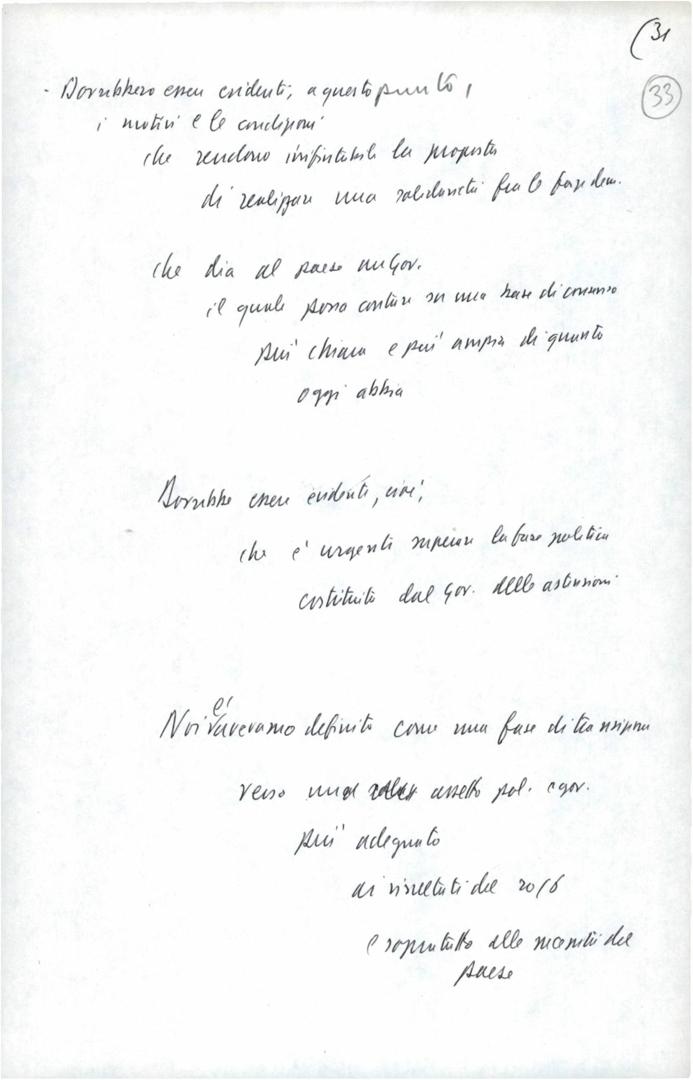 (31
33
- Dovrebbero essere evidenti, a questo punto,
i motivi e le condizioni
che rendono irrifiutabile la proposta
di realizzare una solidarietà fra le forze dem.
che dia al paese un Gov.
il quale possa contare su una base di consenso
più chiara e più ampia di quanto
oggi abbia
Dovrebbe essere evidente, cioè,
che è urgente superare la fase politica
costituita dal Gov. delle astensioni
Noi l'avevamo definita come una fase di transizione
verso un assetto pol. e gov.
più adeguato
ai risultati del 20/6
e soprattutto alle necessità del
paese